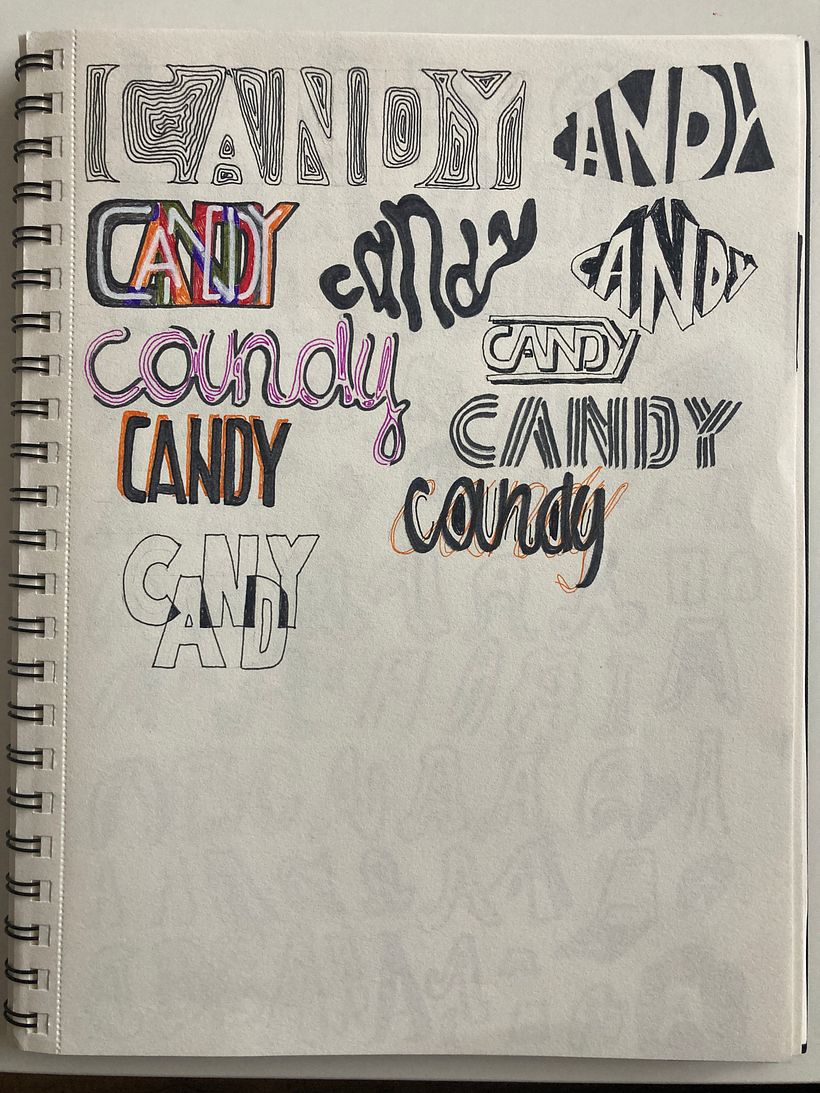 CANDY CANDY
CANDY candy CANDY
candy CANDY
CANDY CANDY
candy
CANDY